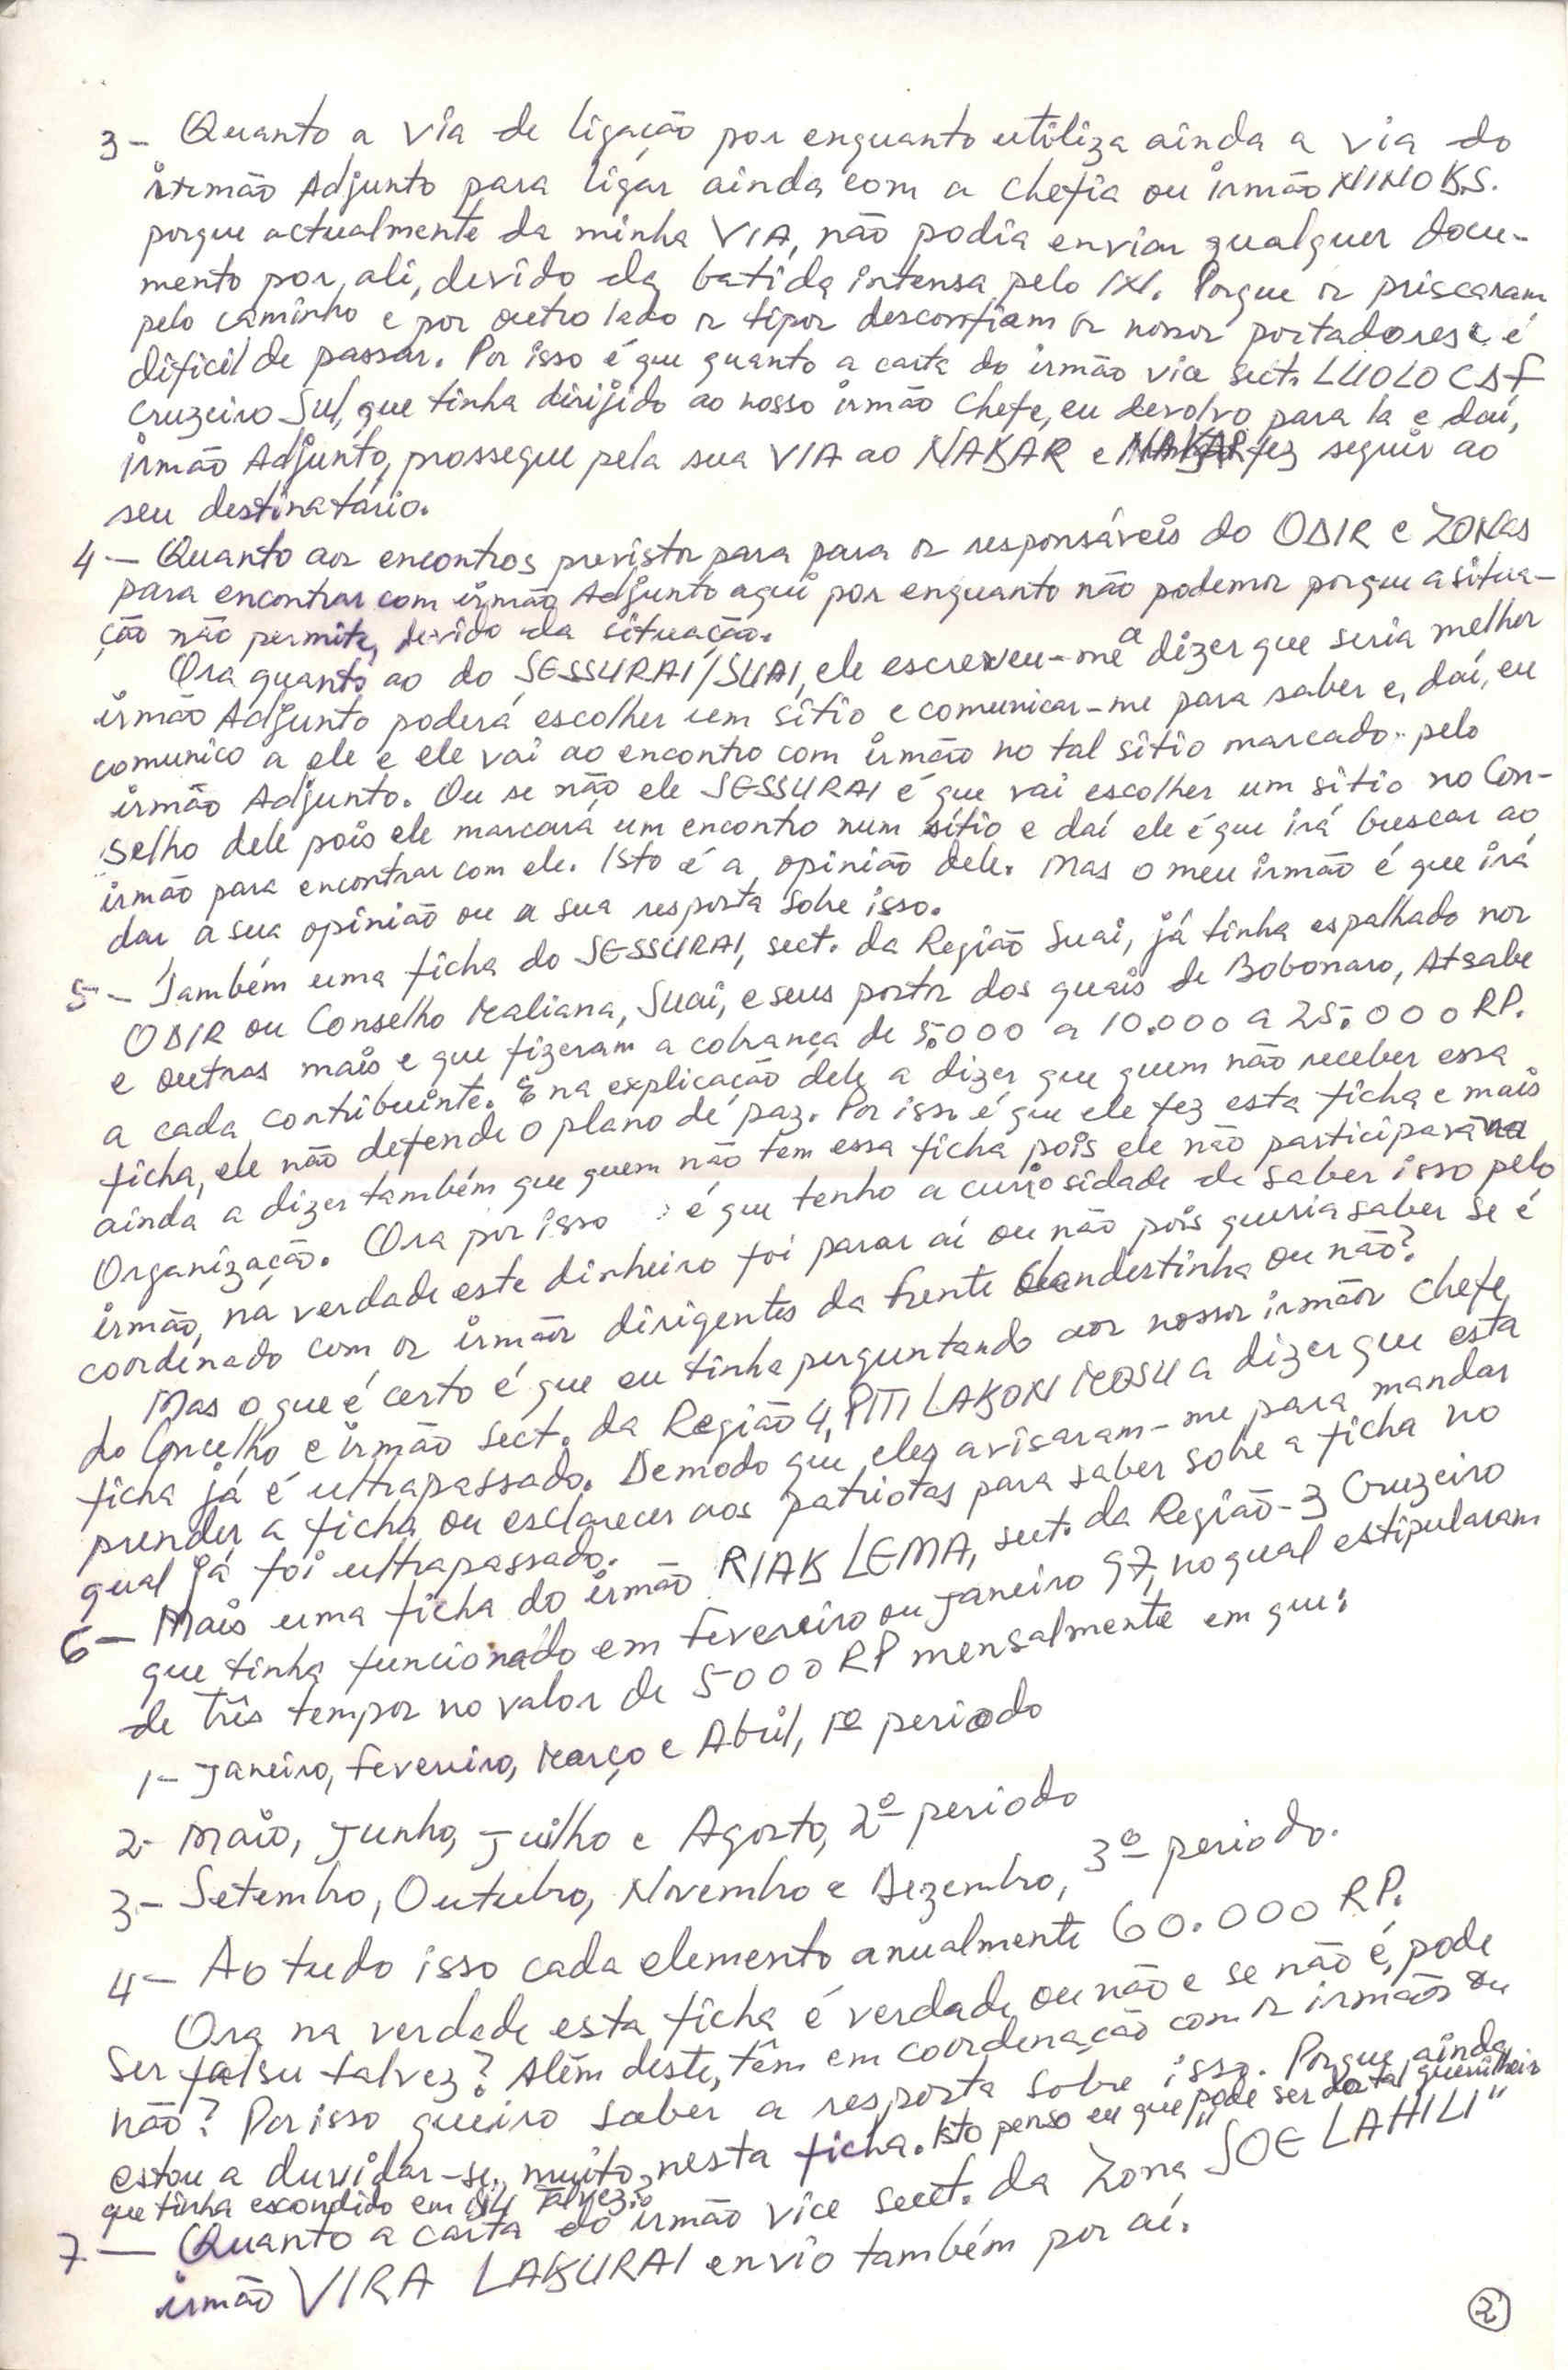 3- Quanto a via de ligação por enquanto utiliza ainda a via do
irmão Adjunto para ligar ainda com a chefia ou irmão NINO K.S.
porque actualmente da minha VIA, não podia enviar qualquer docu-
mento por, ali, devido da batida intensa pelo IXI. Porque os priscaram
pelo caminho e por outro lado os tipos desconfiam os nossos portadores e é
dificil de passar. Por isso é que quanto a carta do irmão vice sect. LUOLO CDF
Cruzeiro Sul, que tinha dirijido ao nosso irmão Chefe, eu devolvo para la e daí,
irmão Adjunto, prossegue pela sua VIA ao NAKAR e NAKAR fez seguir ao
seu destinatário.
4- Quanto aos encontros previstos para para os responsáveis do ODIR e ZONAS
para encontrar com irmão Adjunto aqui por enquanto não podemos porque a situa-
ção não permite, devido da situação.
Ora quanto ao do SESSURAI/SUAI, ele escreveu-me a dizer que seria melhor
irmão Adjunto poderá escolher um sítio e comunicar-me para saber e, daí, eu
comunico a ele e ele vai ao encontro com irmão no tal sitio marcado pelo
irmão Adjunto. Ou se não ele SESSURAI é que vai escolher um sitio no Con-
selho dele pois ele marcará um encontro num sítio e daí ele é que irá buscar ao
irmão para encontrar com ele. Isto é a opinião dele. Mas o meu irmão é que irá
dar a sua opinião ou a sua resposta sobre isso.
5- Também uma ficha do SESSURAI, sect. da Região Suai, já tinha espalhado nos
ODIR ou Conselho Maliana, Suai, e seus postos dos quais de Bobonaro, Atsabe
e outras mais e que fizeram a cobrança de 5.000 a 10.000 a 25.000 RP.
a cada contribuinte. E na explicação dele a dizer que quem não receber essa
ficha, ele não defende o plano de paz. Por isso é que ele fez esta ficha e mais
ainda a dizer também que quem não tem essa ficha pois ele não participará na
Organização. Ora por isso é que tenho a curiosidade de saber isso pelo
irmão, na verdade este dinheiro foi parar aí ou não pois queria saber se é
coordenado com os irmãos dirigentes da frente Clandestinha ou não?
Mas o que é certo é que eu tinha perguntando aos nossos irmãos chefe,
do Concelho e irmão sect. da Região 4, PITI LAKON MOSU a dizer que esta
ficha já é ultrapassado. Demodo que eles avisaram-me para mandar
prender a ficha ou esclarecer aos patriotas para saber sobre a ficha no
qual já foi ultrapassado.
6- Mais uma ficha do irmão RIAK LEMA, sect. da Região-3 Cruzeiro
que tinha funcionado em Fevereiro ou Janeiro 97, no qual estipularam
de três tempos no valor de 5000 RP mensalmente em que:
1- Janeiro, Fevereiro, Março e Abril, 1º periodo
2- Maio, Junho, Julho e Agosto, 2º periodo
3- Setembro, Outubro, Novembro e Dezembro, 3º periodo.
4- Ao tudo isso cada elemento anualmente 60.000 RP.
Ora na verdade esta ficha é verdade ou não e se não é, pode
ser falsu talvez? Além deste, têm em coordenação com os irmãos ou
não? Por isso queiro saber a resposta sobre isso. Porque ainda
estou a duvidar-se muito nesta ficha. Isto penso eu que pode ser do tal guerrilheiro
que tinha escondido em Talvez?
7- Quanto a carta do irmão vice sect. da Zona "SOE LAHILI"
irmão VIRA LAKURAI envio também por aí.
2